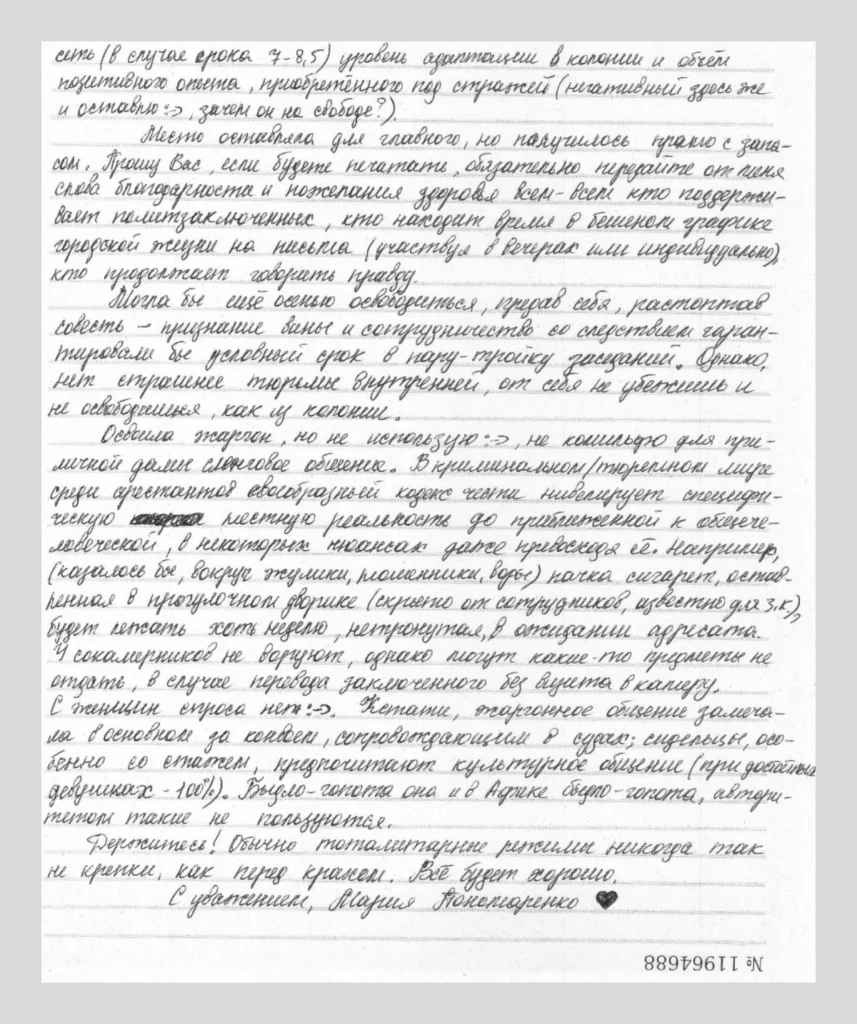 сеть (в случае срока 7-8,5) уровень адаптации в колонии и объём
позитивного опыта, приобретённого под стражей (негативный здесь же
и оставлю :-), зачем он на свободе?).
Место оставляла для главного, но получилось прямо с запа-
сом. Прошу Вас, если будете печатать, обязательно передайте от меня
слова благодарности и пожелания здоровья всем-всем кто поддержи-
вает политзаключенных, кто находит время в бешеном графике
городской жизни на письма (участвуя в вечерах или индивидуально),
кто продолжает говорить правду.
Могла бы ещё осенью освободиться, предав себя, растоптав
совесть – признание вины и сотрудничество со следствием гаран-
тировали бы условный срок в пару-тройку заседаний. Однако,
нет страшнее тюрьмы внутренней, от себя не убежишь и
не освободишься, как из колонии.
Освоила жаргон, но не использую :-), не комильфо для при-
личной дамы слэнговое общение. В криминальном/тюремном мире
среди арестантов своеобразный кодекс чести нивелирует специфи-
ческую местную реальность до приближенной к общече-
ловеческой, в некоторых нюансах даже превосходя её. Например,
(казалось бы, вокруг жулики, мошенники, воры) пачка сигарет, остав-
ленная в прогулочном дворике (скрытно от сотрудников, известно для з.к),
будет лежать хоть неделю, нетронутая, в ожидании адресата.
У сокамерников не воруют, однако могут какие-то предметы не
отдать, в случае перевода заключенного без визита в камеру.
С женщин спроса нет :-). Кстати, жаргонное общение замеча-
ла в основном за конвоем, сопровождающим в судах; сидельцы, осо-
бенно со стажем, предпочитают культурное общение (при достойных
девушках - 100%). Быдло-гопота она и в Африке быдло-гопота, автори-
тетом такие не пользуются.
Держитесь! Обычно тоталитарные режимы никогда так
не крепки, как перед крахом. Всё будет хорошо.
С уважением, Мария Пономаренко ♥
№ 11964688